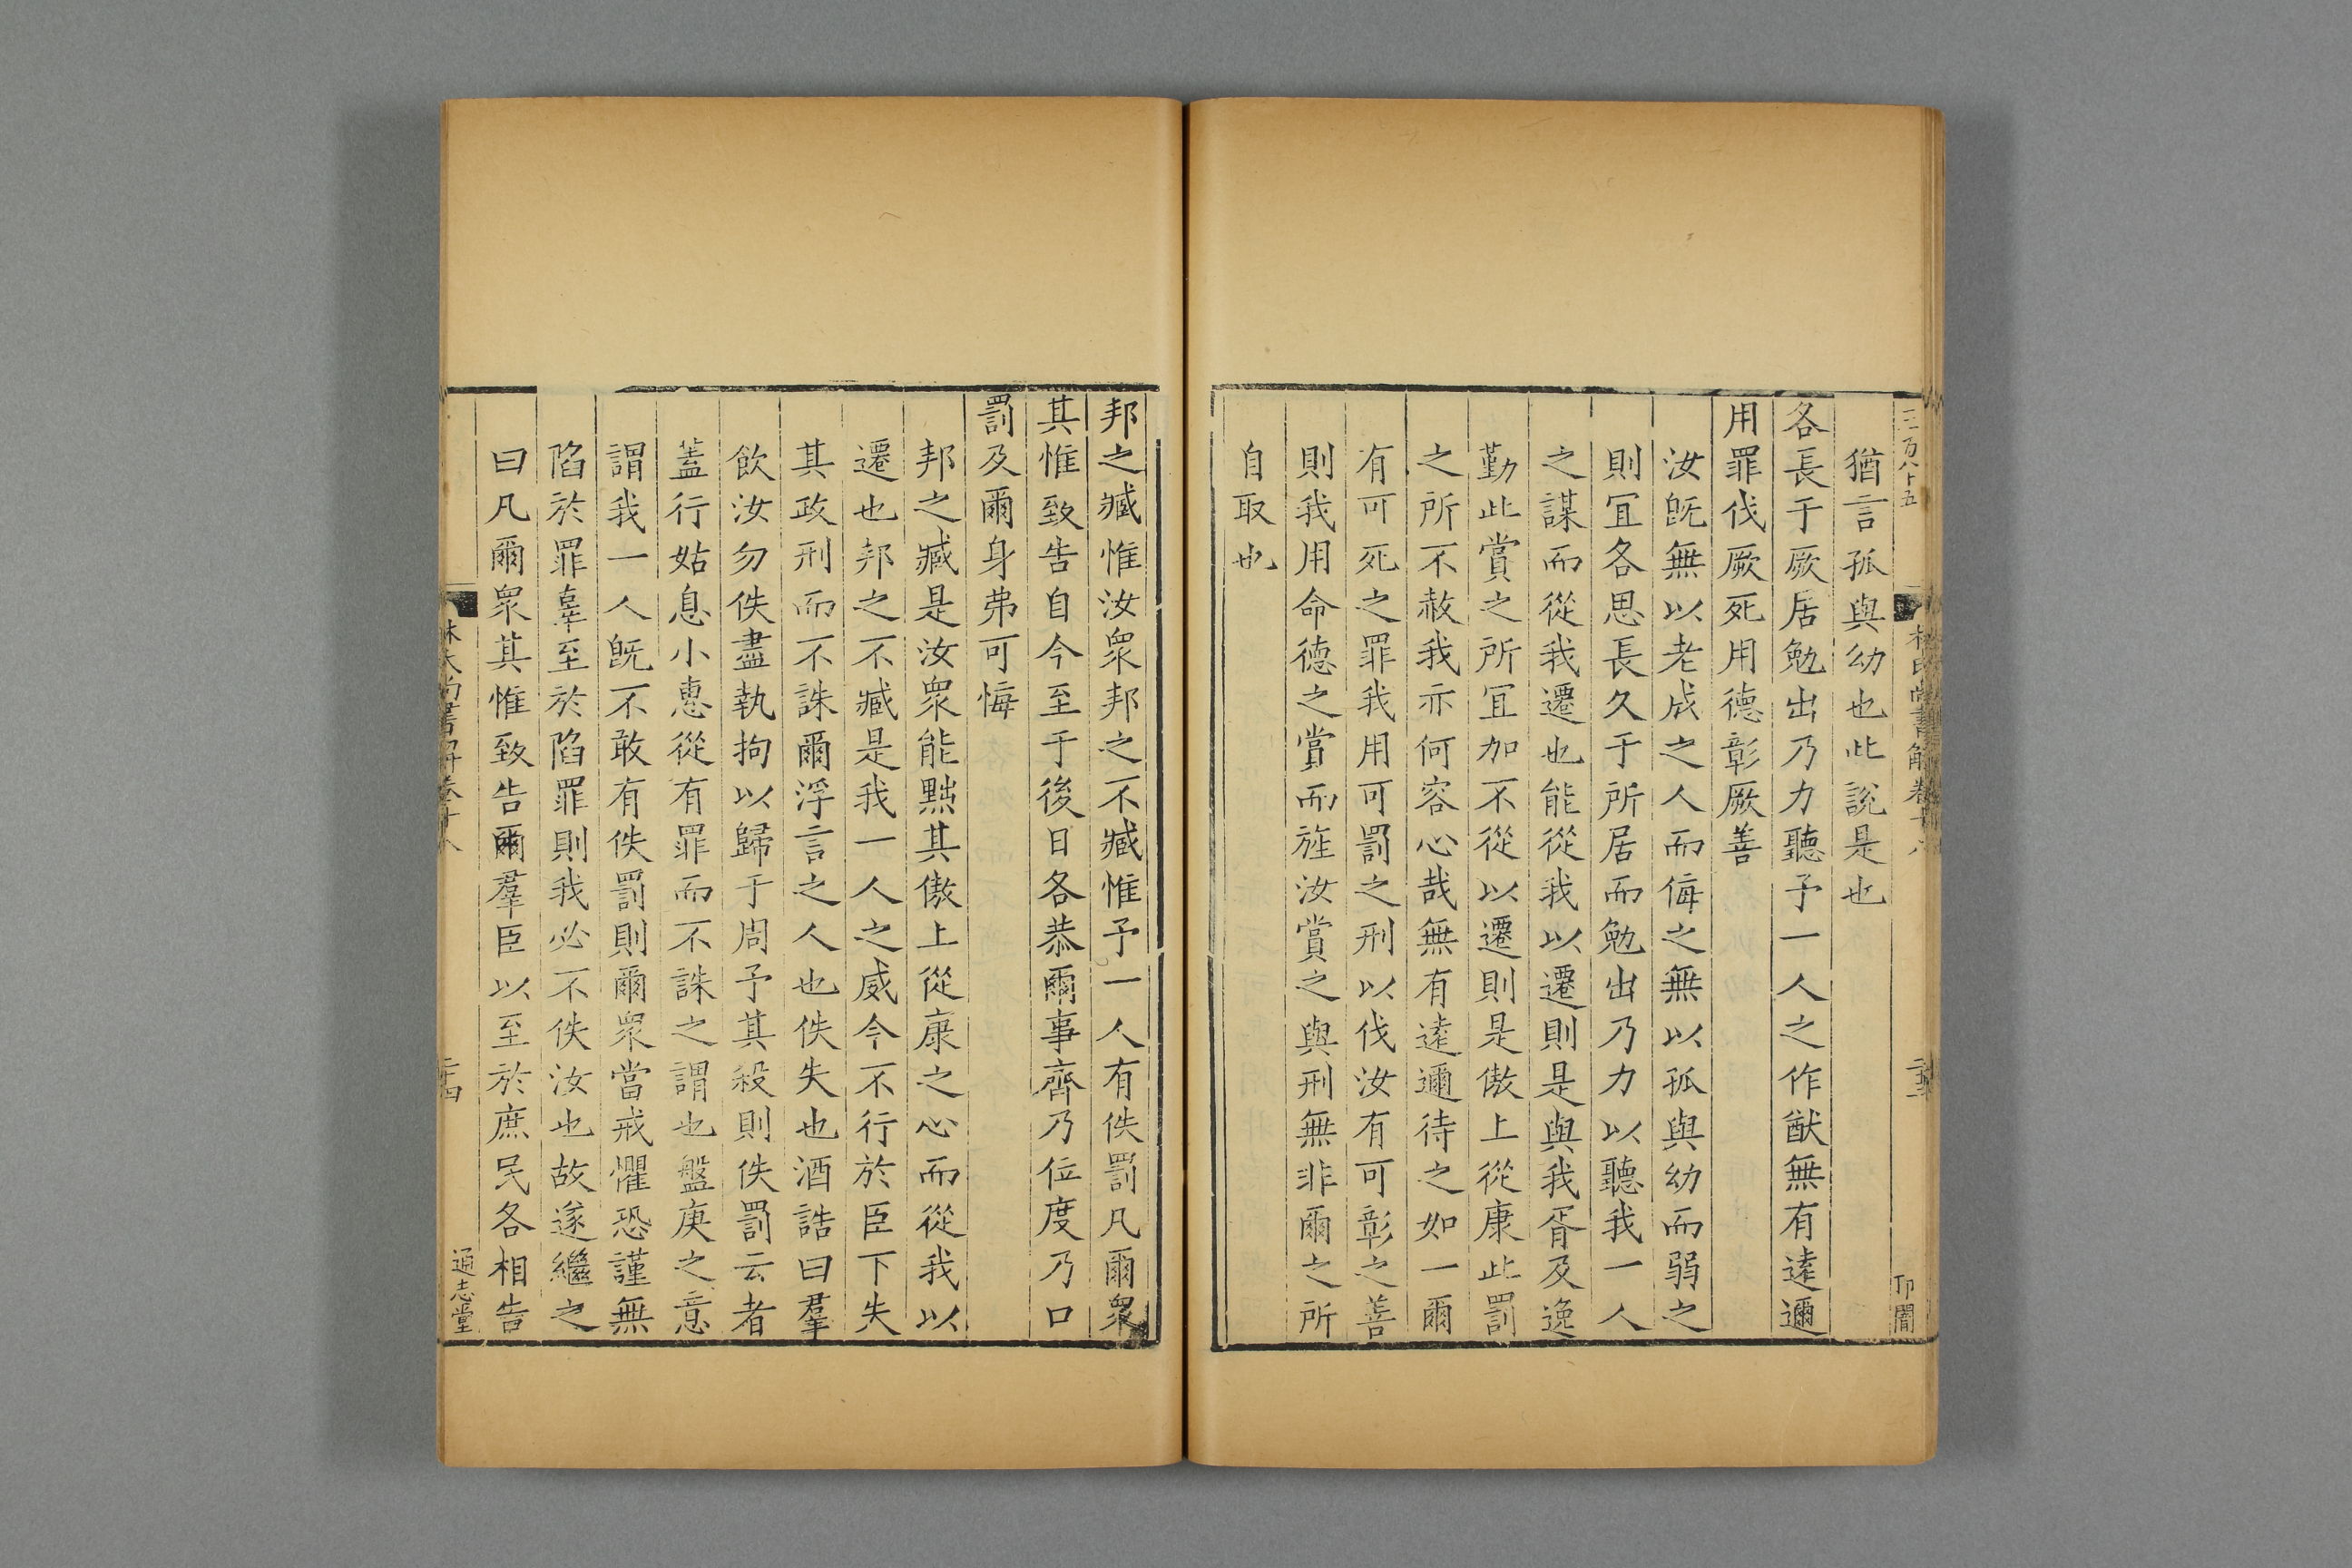 三百八十五
猶言孤與幼也此說是也
各長于厥居勉出乃力聽予一人之作猷無有逺邇
用罪伐厥死用德彰厥善
汝旣無以老成之人而侮之無以孤與幼而弱之
則冝各思長久于所居而勉出乃力以聽我一人
之謀而從我遷也能從我以遷則是與我胥及逸
勤此賞之所冝加不從以遷則是傲上從康此罰
之所不赦我亦何容心哉無有逺邇待之如一爾
有可死之罪我用可罰之刑以伐汝有可彰之善
則我用命德之賞而旌汝賞之與刑無非爾之所
自取也
邦之臧惟汝衆邦之不臧惟予一人有佚罰凡爾衆
其惟致告自今至于後日各恭爾事齊乃位度乃口
罰及爾身弗可悔
邦之臧是汝衆能黜其傲上從康之心而從我以
遷也邦之不臧是我一人之威令不行於臣下失
其政刑而不誅爾浮言之人也佚失也酒誥曰羣
飲汝勿佚盡執拘以歸于周予其殺則佚罰云者
蓋行姑息小惠從有罪而不誅之謂也盤庚之意
謂我一人旣不敢有佚罰則爾衆當戒懼恐謹無
陷於罪辜至於陷罪則我必不佚汝也故遂繼之
曰凡爾衆其惟致告爾羣臣以至於庶民各相告
林氏尚書解卷十八
二十四
通志堂